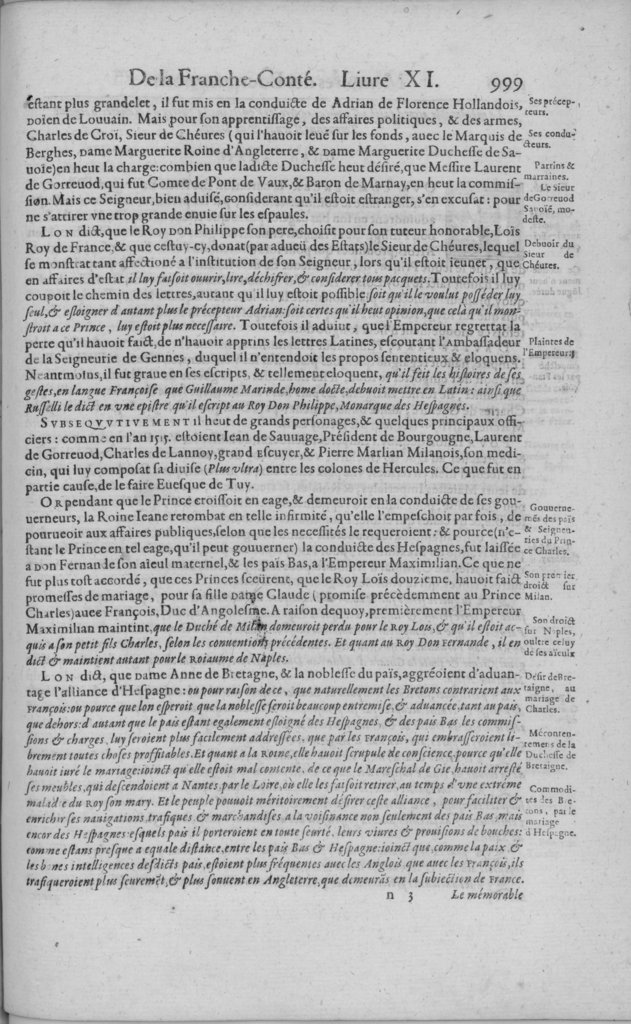 De la Franche-Conté. Liure XI. 999
estant plus grandelet, il fut mis en la conduicte de Adrian de Florence Hollandois,
Doien de Louuain. Mais pour son apprentissage, des affaires politiques, & des armes,
Charles de Croï, Sieur de Chéures (qui l'hauoit leué sur les fonds, auec le Marquis de
Berghes, Dame Marguerite Roine d'Angleterre, & Dame Marguerite Duchesse de Sa-
uoie) en heut la charge: combien que ladicte Duchesse heut désiré, que Messire Laurent
de Gorreuod, qui fut Comte de Pont de Vaux, & Baron de Marnay, en heut la commis-
sion. Mais ce Seigneur, bien aduisé, considerant qu'il estoit estranger, s'en excusat: pour
ne s'attirer vne trop grande enuie sur les espaules.
Ses précep-
teurs.
Ses condu-
cteurs.
Parrins &
marraines.
Le Sieur
de Gorreuod
Sauoïé, mo-
deste.
LON dict, que le Roy don Philippe son pere, choisit pour son tuteur honorable, Loïs
Roy de France, & que cestuy-cy, donat (par adueü des Estats) le Sieur de Chéures, lequel
se monstrat tant affectioné a l'institution de son Seigneur, lors qu'il estoit ieunet, que
en affaires d'estat il luy faisoit ouurir, lire, déchifrer, & considerer tous pacquets. Toutefois il luy
coupoit le chemin des lettres, autant qu'il luy estoit possible soit qu'il le voulut posséder luy
seul, & esloigner d'autant plus le précepteur Adrian: soit certes qu'il heut opinion, que cela qu'il mon-
stroit a ce Prince, luy estoit plus necessaire. Toutefois il aduint, que l'Empereur regrettat la
perte qu'il hauoit faict, de n'hauoir apprins les lettres Latines, escoutant l'Ambassadeur
de la Seigneurie de Gennes, duquel il n'entendoit les propos sententieux & eloquens.
Neantmoins, il fut graue en ses escripts, & tellement eloquent, qu'il feit les histoires de ses
gestes, en langue Françoise que Guillaume Marinde, home docte, debuoit mettre en Latin: ainsi que
Russelli le dict en vne epistre qu'il escript au Roy Don Philippe, Monarque des Hespagnes.
Debuoir du
Sieur de
Chéures.
Plaintes de
l'Empereur.
SVBSEQVVTIVEMENT il heut de grands personages, & quelques principaux offi-
ciers: comme en l'an 1515. estoient Iean de Sauuage, Président de Bourgougne, Laurent
de Gorreuod, Charles de Lannoy, grand Escuyer, & Pierre Marlian Milanois, son medi-
cin, qui luy composat sa diuise (Plus vltra) entre les colones de Hercules. Ce que fut en
partie cause, de le faire Euesque de Tuy.
OR pendant que le Prince croissoit en eage, & demeuroit en la conduicte de ses gou-
uerneurs, la Roine Ieane retombat en telle infirmité, qu'elle l'empeschoit par fois, de
pourueoir aux affaires publiques, selon que les necessités le requeroient: & pource (n'e-
stant le Prince en tel eage, qu'il peut gouuerner) la conduicte des Hespagnes, fut laissée
a DON Fernande son aïeul maternel, & les païs Bas, a l'Empereur Maximilian. Ce que ne
fut plus tost accordé, que ces Princes sceürent, que le Roy Loïs douzieme, hauoit faict
promesses de mariage, pour sa fille Dame Claude (promise précèdemment au Prince
Charles) auec François, Duc d'Angolesme. A raison dequoy, premièrement l'Empereur
Maximilian maintint, que le Duché de Milan demeuroit perdu pour le Roy Lois, & qu'il estoit ac-
quis a son petit fils Charles, selon les conuentions précédentes. Et quant au Roy DON Fernande, il en
dict & maintient autant pour le Roiaume de Naples.
Gouuerne-
més des païs
& Seigneu-
ries du Prin-
ce Charles.
Son premier
droict sur
Milan.
Son droict
sur Naples,
oultre celuy
de ses aïeulx
LON dict, que Dame Anne de Bretagne, & la noblesse du païs, aggréoient d'aduan-
tage l'alliance d'Hespagne: ou pour raison de ce, que naturellement les Bretons contrarient aux
François: ou pource que lon esperoit que la noblesse seroit beaucoup entremise, & aduancée, tant au païs,
que dehors: d'autant que le païs estant egalement esloigné des Hespagnes, & des païs Bas les commis-
sions & charges, luy seroient plus facilement addressées, que par les François, qui embrasseroient li-
brement toutes choses proffitables. Et quant a la Roine, elle hauoit scrupule de conscience, pource qu'elle
hauoit iuré le mariage: ioinct qu'elle estoit mal contente, de ce que le Mareschal de Gie, hauoit arresté
ses meubles, qui descendoient a Nantes, par le Loire, où elle les faisoit retirer, au temps d'vne extrême
maladie du Roy son mary. Et le peuple pouuoit méritoirement désirer ceste alliance, pour faciliter &
enrichir ses nauigations, trafiques & marchandises, a la voisinance non seulement des païs Bas, mais
encor des Hespagnes: esquels païs il porteroient en toute seurté, leurs viures & prouisions de bouches:
comme estans presque a equale distance, entre les païs Bas & Hespagne: ioinct que, comme la paix, &
les bones intelligences desdicts païs, estoient plus fréquentes auec les Anglois que auec les François, ils
trafiqueroient plus seuremêt, & plus souuent en Angleterre, que demeurãs en la subiection de France.
Désir de Bre-
taigne, au
mariage de
Charles.
Mécontente-
temens de la
Duchesse de
Bretaigne.
Commodi-
tés des Bre-
tons, par le
mariage
d'Hespagne.
n 3 Le mémorable